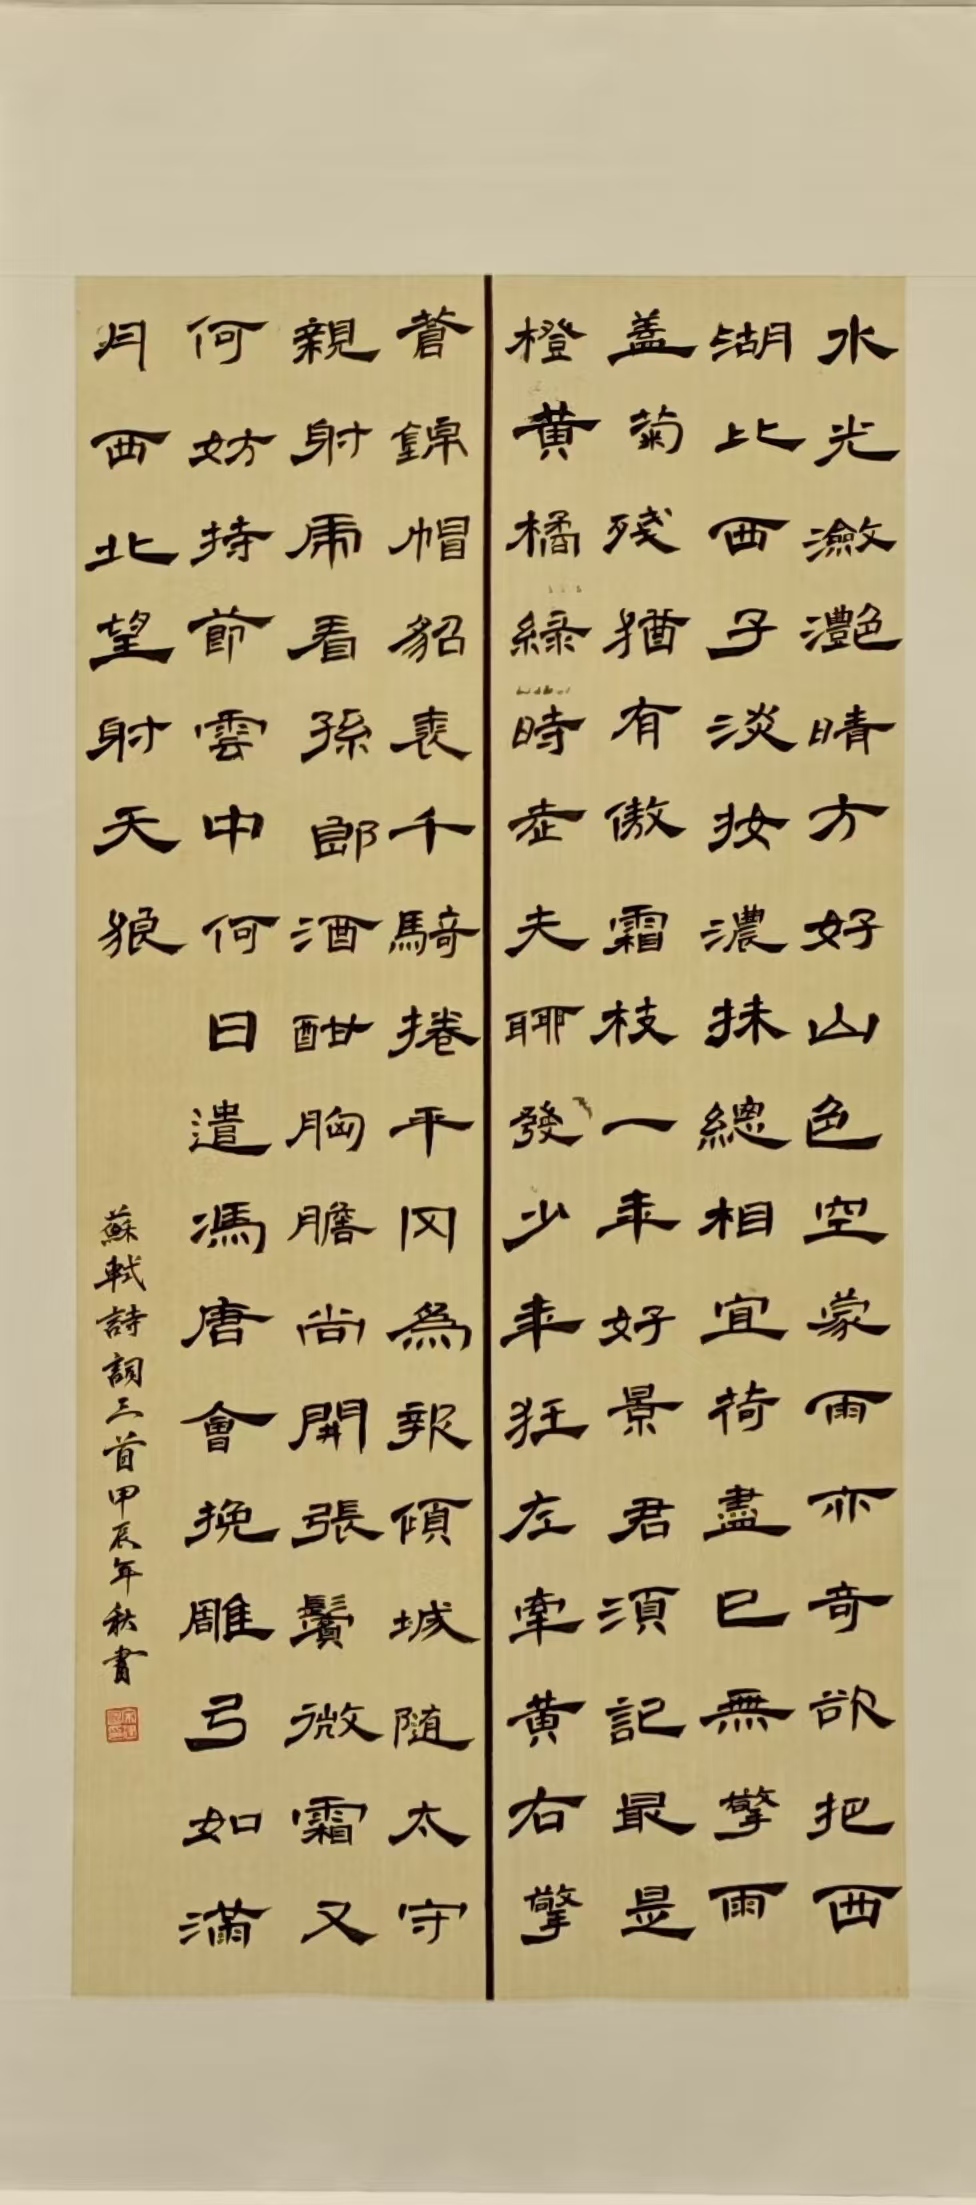 水光瀲灩晴方好山色空蒙雨亦奇欲把西
湖比西子淡妝濃抹總相宜荷盡已無擎雨
蓋菊殘猶有傲霜枝一年好景君須記最是
橙黃橘綠時老夫聊發少年狂左牽黃右擎
蒼錦帽貂裘千騎捲平冈為報傾城随太守
親射虎看孫郎酒酣胸膽尚開張鬢微霜又
何妨持節雲中何日遣馮唐會挽雕弓如滿
月西北望射天狼
蘇軾詩詞三首甲辰年秋書